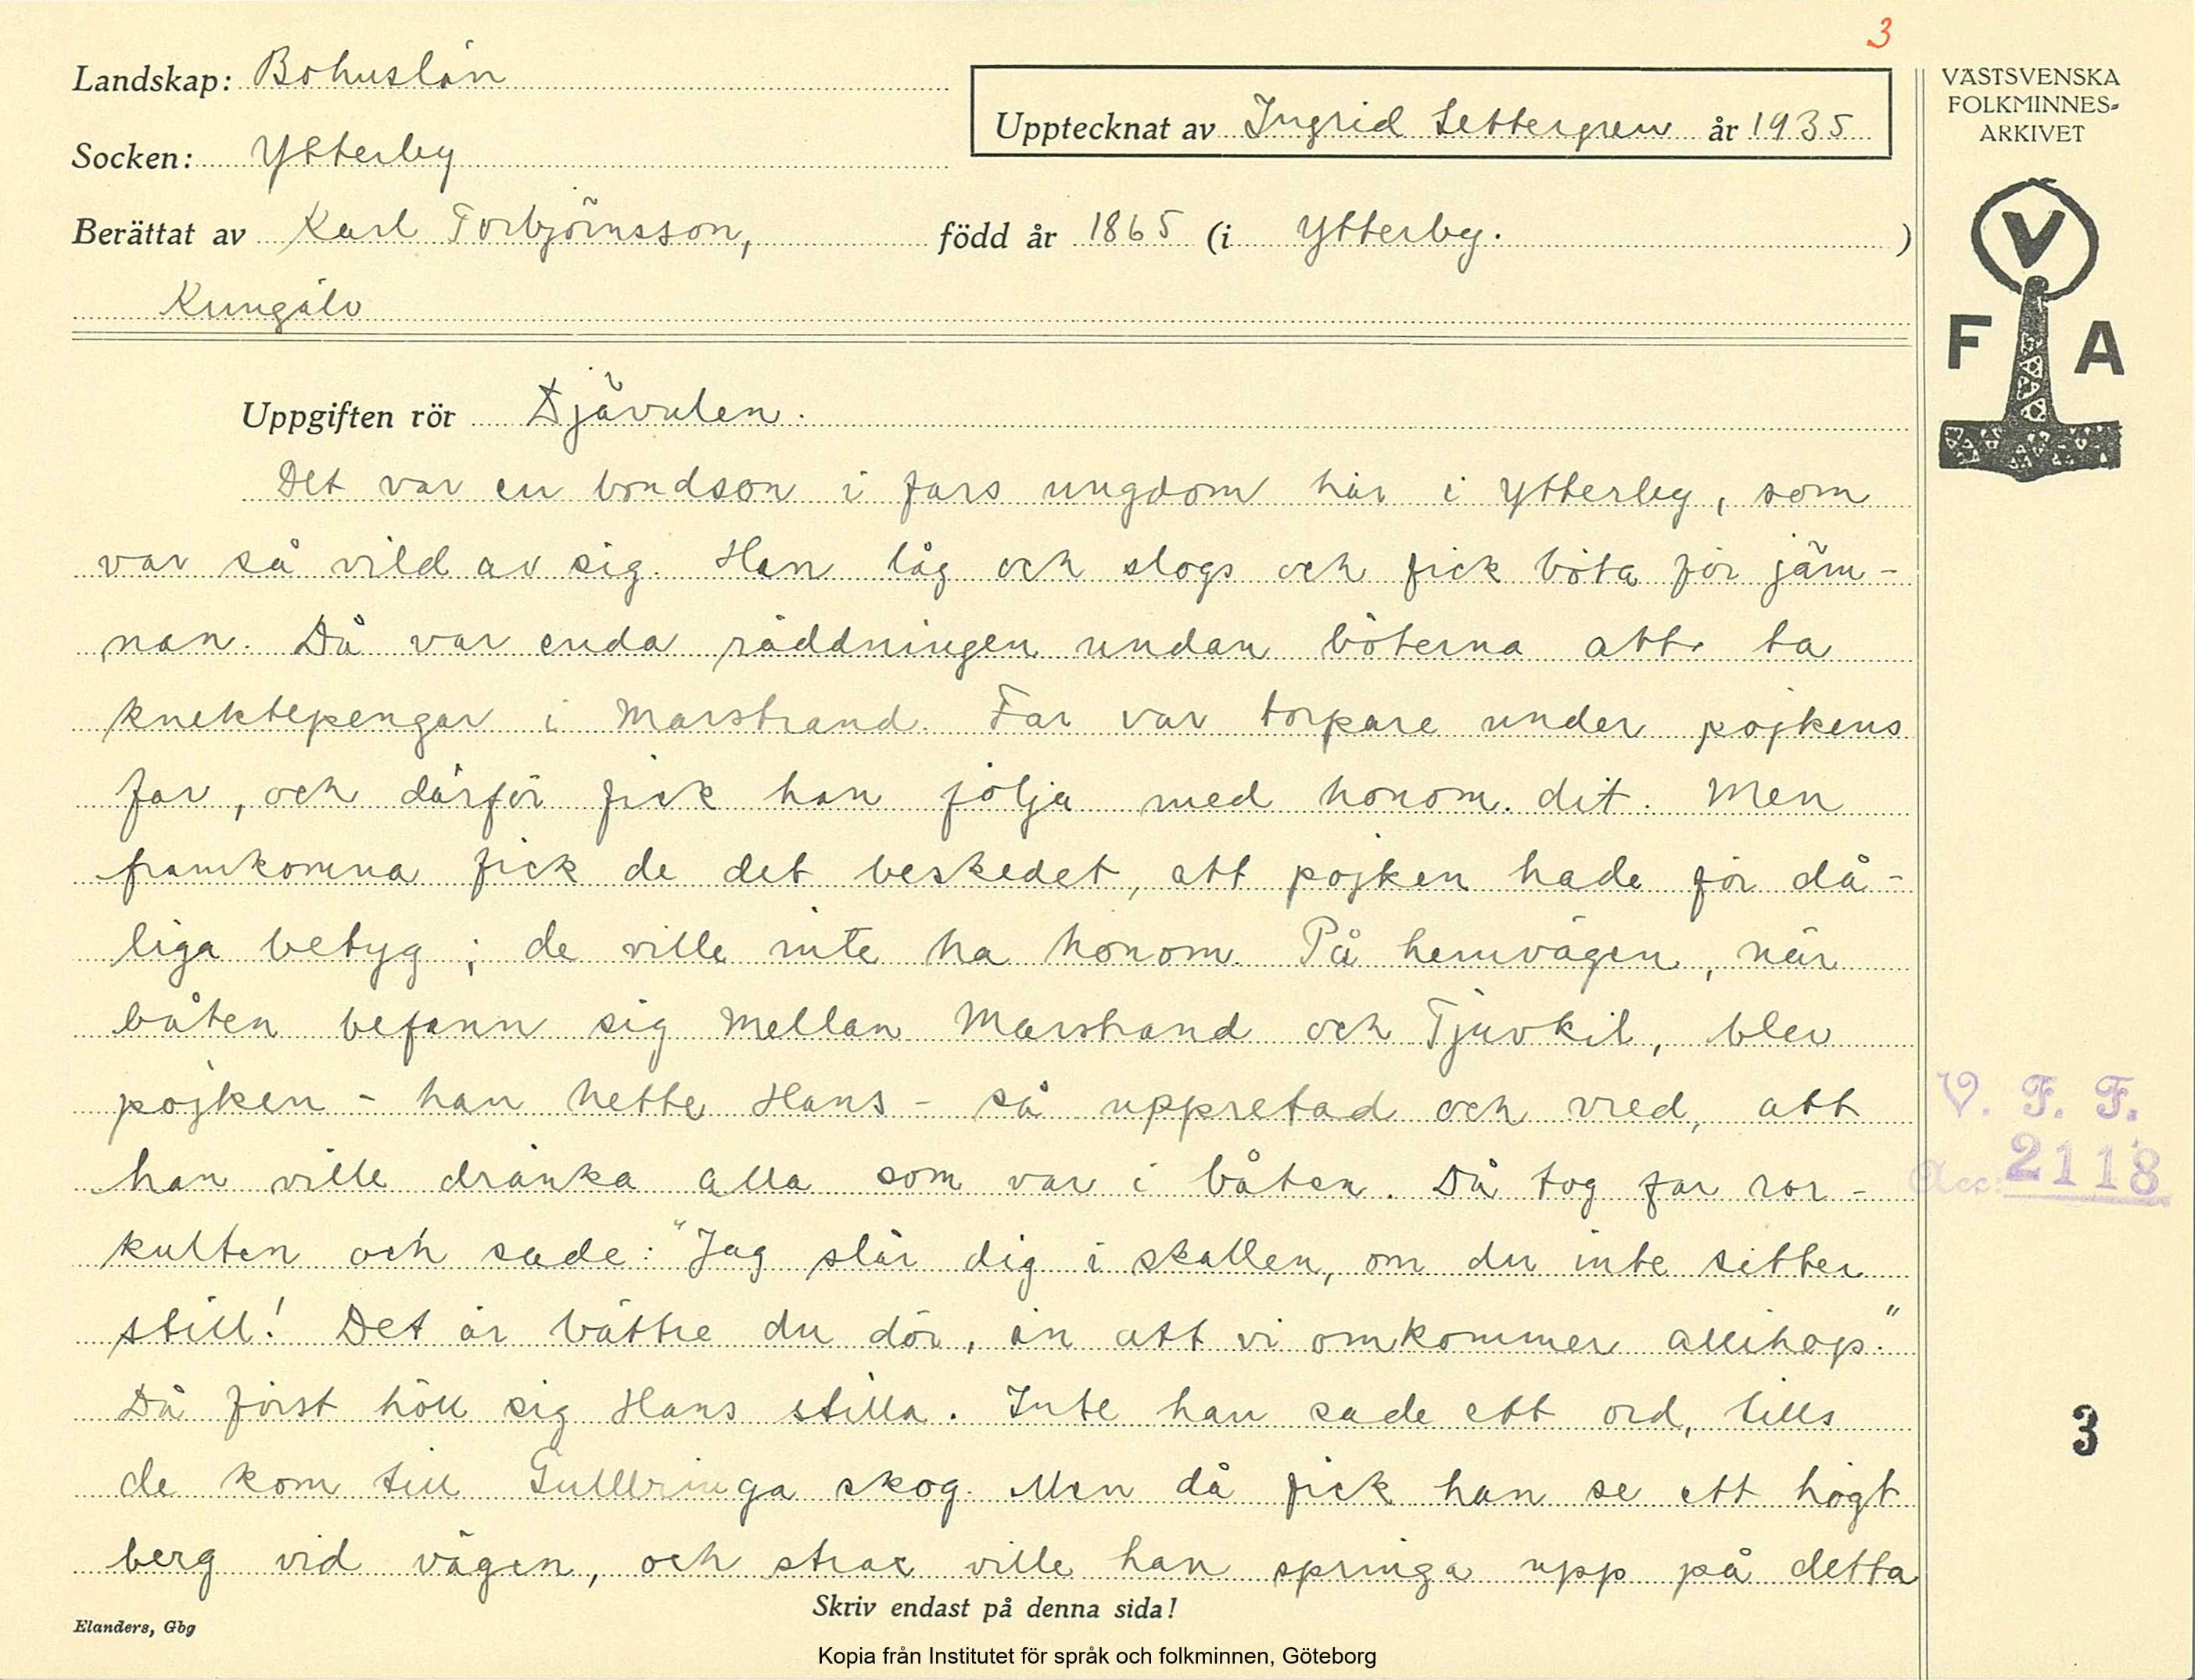 3
Landskap: Bohuslän
Socken: Ytterby
Upptecknat av Ingrid Settergren år 1935
Berättat av Karl Torbjörnsson, född år 1865 (i Ytterby. )
Kungälv
VÄSTSVENSKA
FOLKMINNES-
ARKIVET
V
F A
Uppgiften rör Djävulen.
Det var en bondson i fars ungdom här i Ytterby, som
var så vild av sig. Han låg och slogs och fick böta för jäm-
nan. Då var enda räddningen undan böterna att ta
knektepengar i Marstrand. Far var torpare under pojkens
far, och därför fick han följa med honom dit. Men
framkomna fick de det beskedet, att pojken hade för då-
liga betyg; de ville inte ha honom. På hemvägen, när
båten befann sig mellan Marstrand och Tjuvkil, blev
pojken - han hette Hans - så uppretad och vred, att
han ville dränka alla som var i båten. Då tog far ror-
kulten och sade: "Jag slår dig i skallen, om du inte sitter
still! Det är bättre du dör, än att vi omkommer allihop."
Då först höll sig Hans stilla. Inte han sade ett ord, tills
de kom till Gullbringa skog. Men då fick han se ett högt
berg vid vägen, och strax ville han springa upp på detta
V. F. F.
Acc: 2118
3
Skriv endast på denna sida!
Elanders, Gbg
Kopia från Institutet för språk och folkminnen, Göteborg